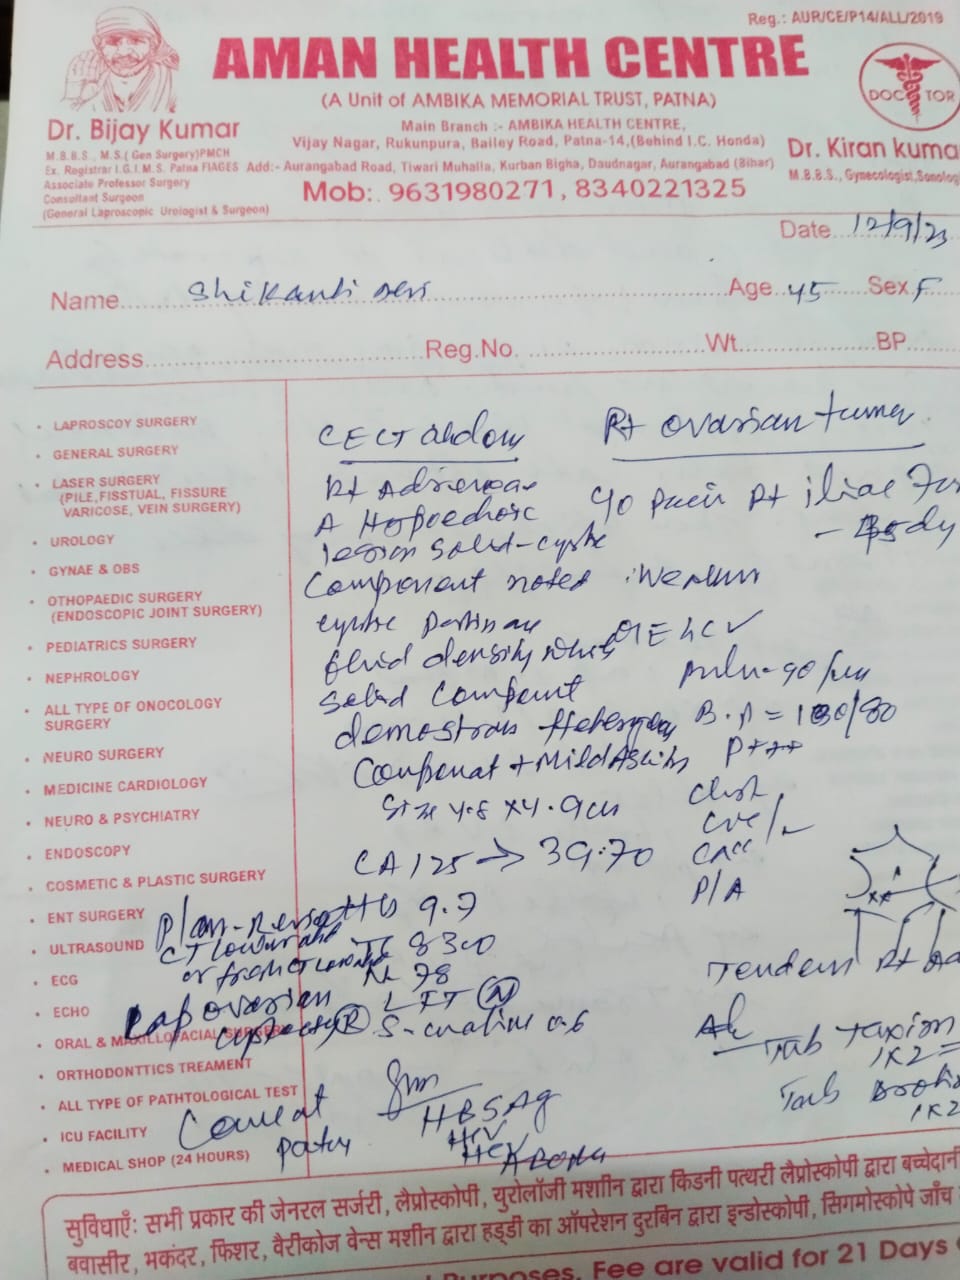 Reg.: AUR/CE/P14/ALL/2019
AMAN HEALTH CENTRE
(A Unit of AMBIKA MEMORIAL TRUST, PATNA)
DOCTOR
Main Branch :- AMBIKA HEALTH CENTRE,
Vijay Nagar, Rukunpura, Bailey Road, Patna-14,(Behind I.C. Honda)
Add:- Aurangabad Road, Tiwari Muhalla, Kurban Bigha, Daudnagar, Aurangabad (Bihar)
Mob:. 9631980271, 8340221325
Dr. Bijay Kumar
M.B.B.S., M.S.( Gen Surgery)PMCH
Ex. Registrar I.G.I.M.S. Patna FIAGES
Associate Professor Surgery
Consultant Surgeon
(General Laproscopic Urologist & Surgeon)
Dr. Kiran kuma
M.B.B.S., Gynecologist,Sonolog
Date 12/9/23
Name Shikanti Devi Age 45 Sex F
Address Reg.No. Wt. BP
LAPROSCOY SURGERY
GENERAL SURGERY
LASER SURGERY
(PILE,FISSTUAL, FISSURE
VARICOSE, VEIN SURGERY)
UROLOGY
GYNAE & OBS
OTHOPAEDIC SURGERY
(ENDOSCOPIC JOINT SURGERY)
PEDIATRICS SURGERY
NEPHROLOGY
ALL TYPE OF ONOCOLOGY
SURGERY
NEURO SURGERY
MEDICINE CARDIOLOGY
NEURO & PSYCHIATRY
ENDOSCOPY
COSMETIC & PLASTIC SURGERY
ENT SURGERY
ULTRASOUND
ECG
ECHO
ORAL & MAXILLOFACIAL SURGERY
ORTHODONTTICS TREAMENT
ALL TYPE OF PATHTOLOGICAL TEST
ICU FACILITY
MEDICAL SHOP (24 HOURS)
CECT Abdom
Rt Adnexae
A Hypoechoic
lesion solid-cystic
component noted
cystic portion are
fluid density
solid component
component + Mild Ascitis
Size 4.8 x 4.9 cm
CA 125 → 39.70
Hb 9.7
TC 8300
N 78
LFT (N)
S-creatine 0.6
HBSAg
HCV
Plan-
CT lower abd
Lap ovarian
cystectomy (R)
Rt ovarian tumor
C/o Pain Rt iliac
- Body
Weakness
O/E GC ✓
Pulse-90/min
B.P = 130/80
P+++
Chest
CVS
CNS
P/A
Tender Rt
Tab Taxim
1x2
Tab
1x2
सुविधाएँ: सभी प्रकार की जेनरल सर्जरी, लैप्रोस्कोपी, युरोलॉजी मशीन द्वारा किडनी पत्थरी लैप्रोस्कोपी द्वारा बच्चेदानी
बवासीर, भकंदर, फिशर, वैरीकोज वेन्स मशीन द्वारा हड्डी का ऑपरेशन दुरबिन द्वारा इन्डोस्कोपी, सिगमोस्कोपे जाँच
Purposes. Fee are valid for 21 Days